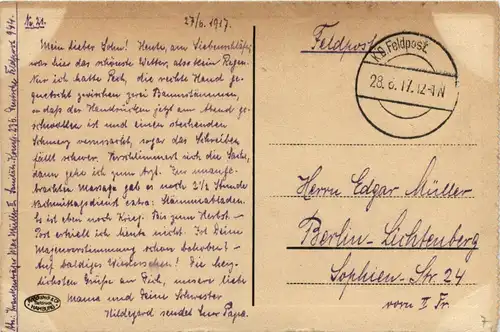 No. 21.
27/6. 1917.
Mein lieber Sohn! Heute, am Siebenschläfer,
war hier das schönste Wetter, also kein Regen.
Nur ich hatte Pech, die rechte Hand ge-
quetscht zwischen zwei Baumstämmen,
sodaß der Handrücken jetzt am Abend ge-
schwollen ist und einen stechenden
Schmerz verursacht, sogar das Schreiben
fällt schwer. Verschlimmert sich die Sache,
dann gehe ich zum Arzt. Zur
Massage gab es noch 2 1/2 Stunde
Nachmittagsdienst extra: Stämmeabladen.
Es ist eben noch Krieg. Bis zum Herbst –
Post erhielt ich heute nicht. Ist Deine
Magenverstimmung schon behoben? –
Auf baldiges Wiedersehen! Die herz-
lichsten Grüße an Dich, unsere liebe
Mama und Deine Schwester
Hildegard sendet Euer Papa.
Abs. Krankenträger Max Müller II. 236. Deutsche Feldpost 944.
Feldpost
K.D. Feldpost.
28.6.17.12-1N
Herrn Edgar Müller
Berlin-Lichtenberg
Sophien-Str. 24
vorn II Tr.
HAMBURG
7